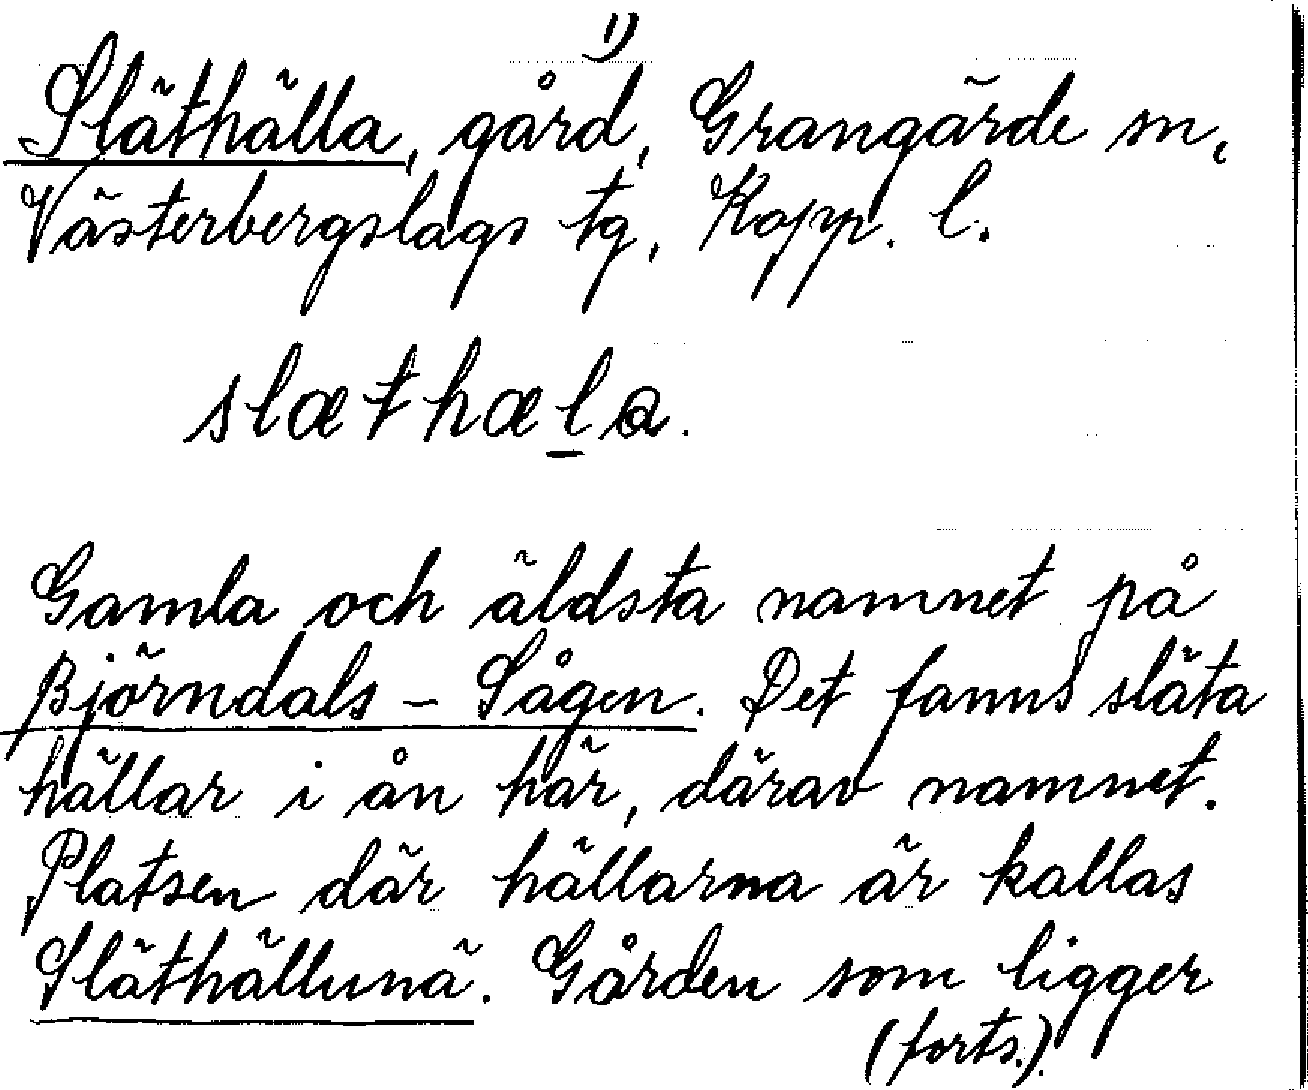 1)
Släthälla, gård, Grangärde sn,
Västerbergslags tg, Kopp. l.
slæthæla.
Gamla och äldsta namnet på
Björndals - Sågen. Det fanns släta
hällar i ån här, därav namnet.
Platsen där hällarna är kallas
Släthällunä. Gården som ligger
(forts.)